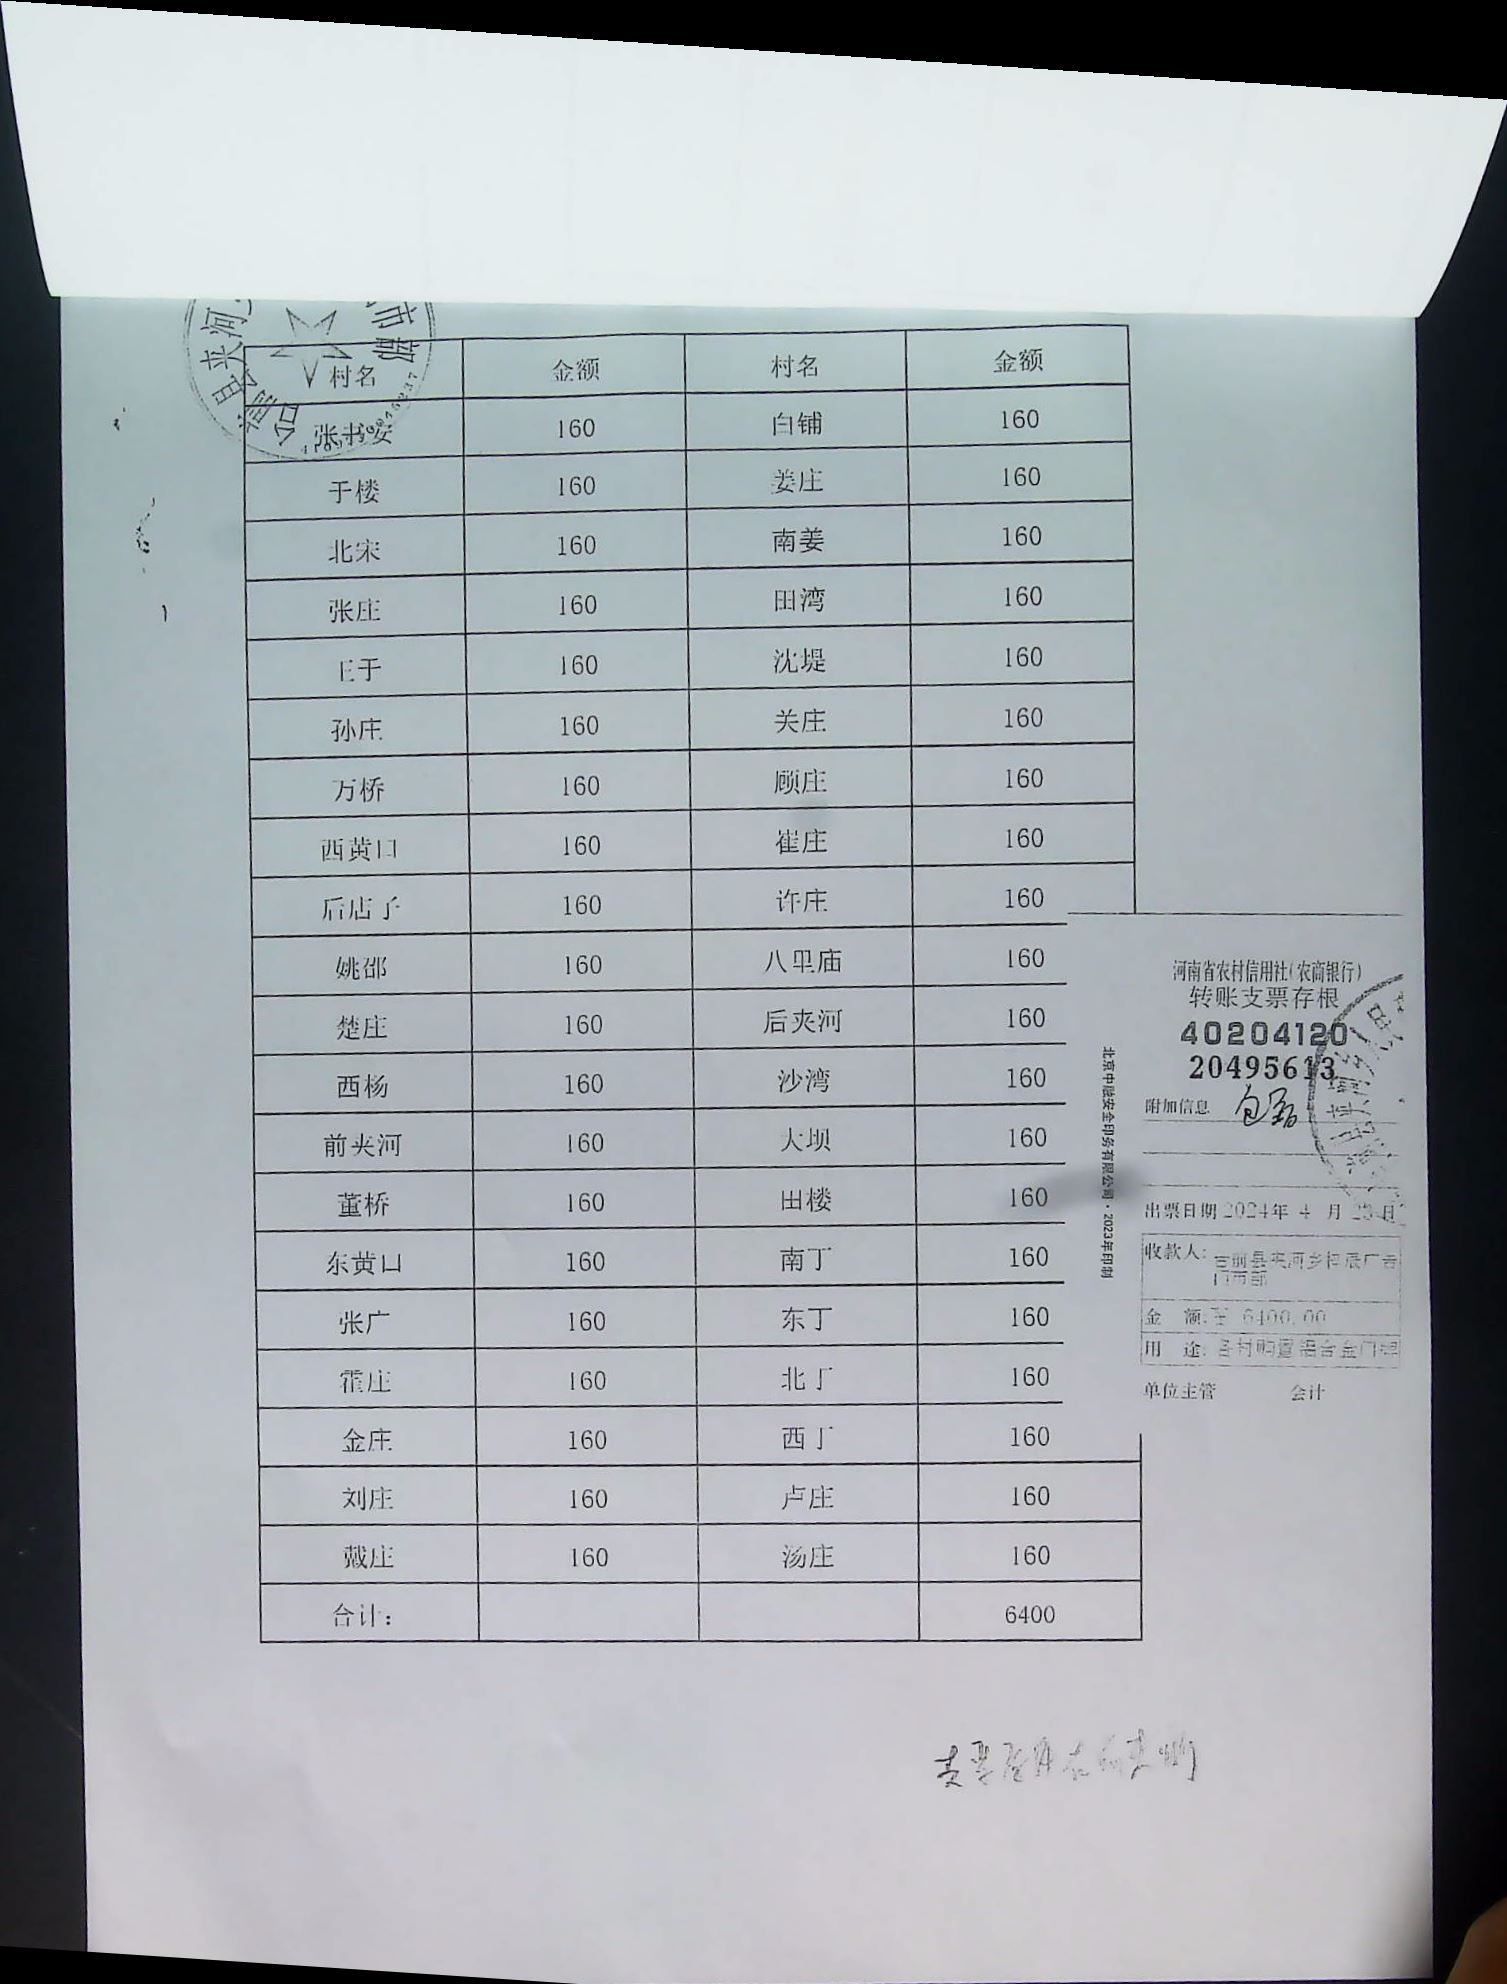 村名 金额 村名 金额
张书安 160 白铺 160
于楼 160 姜庄 160
北宋 160 南姜 160
张庄 160 田湾 160
王于 160 沈堤 160
孙庄 160 关庄 160
万桥 160 顾庄 160
西黄口 160 崔庄 160
后店子 160 许庄 160
姚邵 160 八里庙 160
楚庄 160 后夹河 160
西杨 160 沙湾 160
前夹河 160 大坝 160
董桥 160 田楼 160
东黄口 160 南丁 160
张广 160 东丁 160
霍庄 160 北丁 160
金庄 160 西丁 160
刘庄 160 卢庄 160
戴庄 160 汤庄 160
合计： 6400
河南省农村信用社(农商银行)
转账支票存根
40204120
20495613
附加信息
出票日期 2024年 4 月
收款人: 台前县夹河乡 广告
门市部
金 额: 6400.00
用 途: 各村购置铝合金门牌
单位主管 会计
北京中融安全印务有限公司·2023年印制